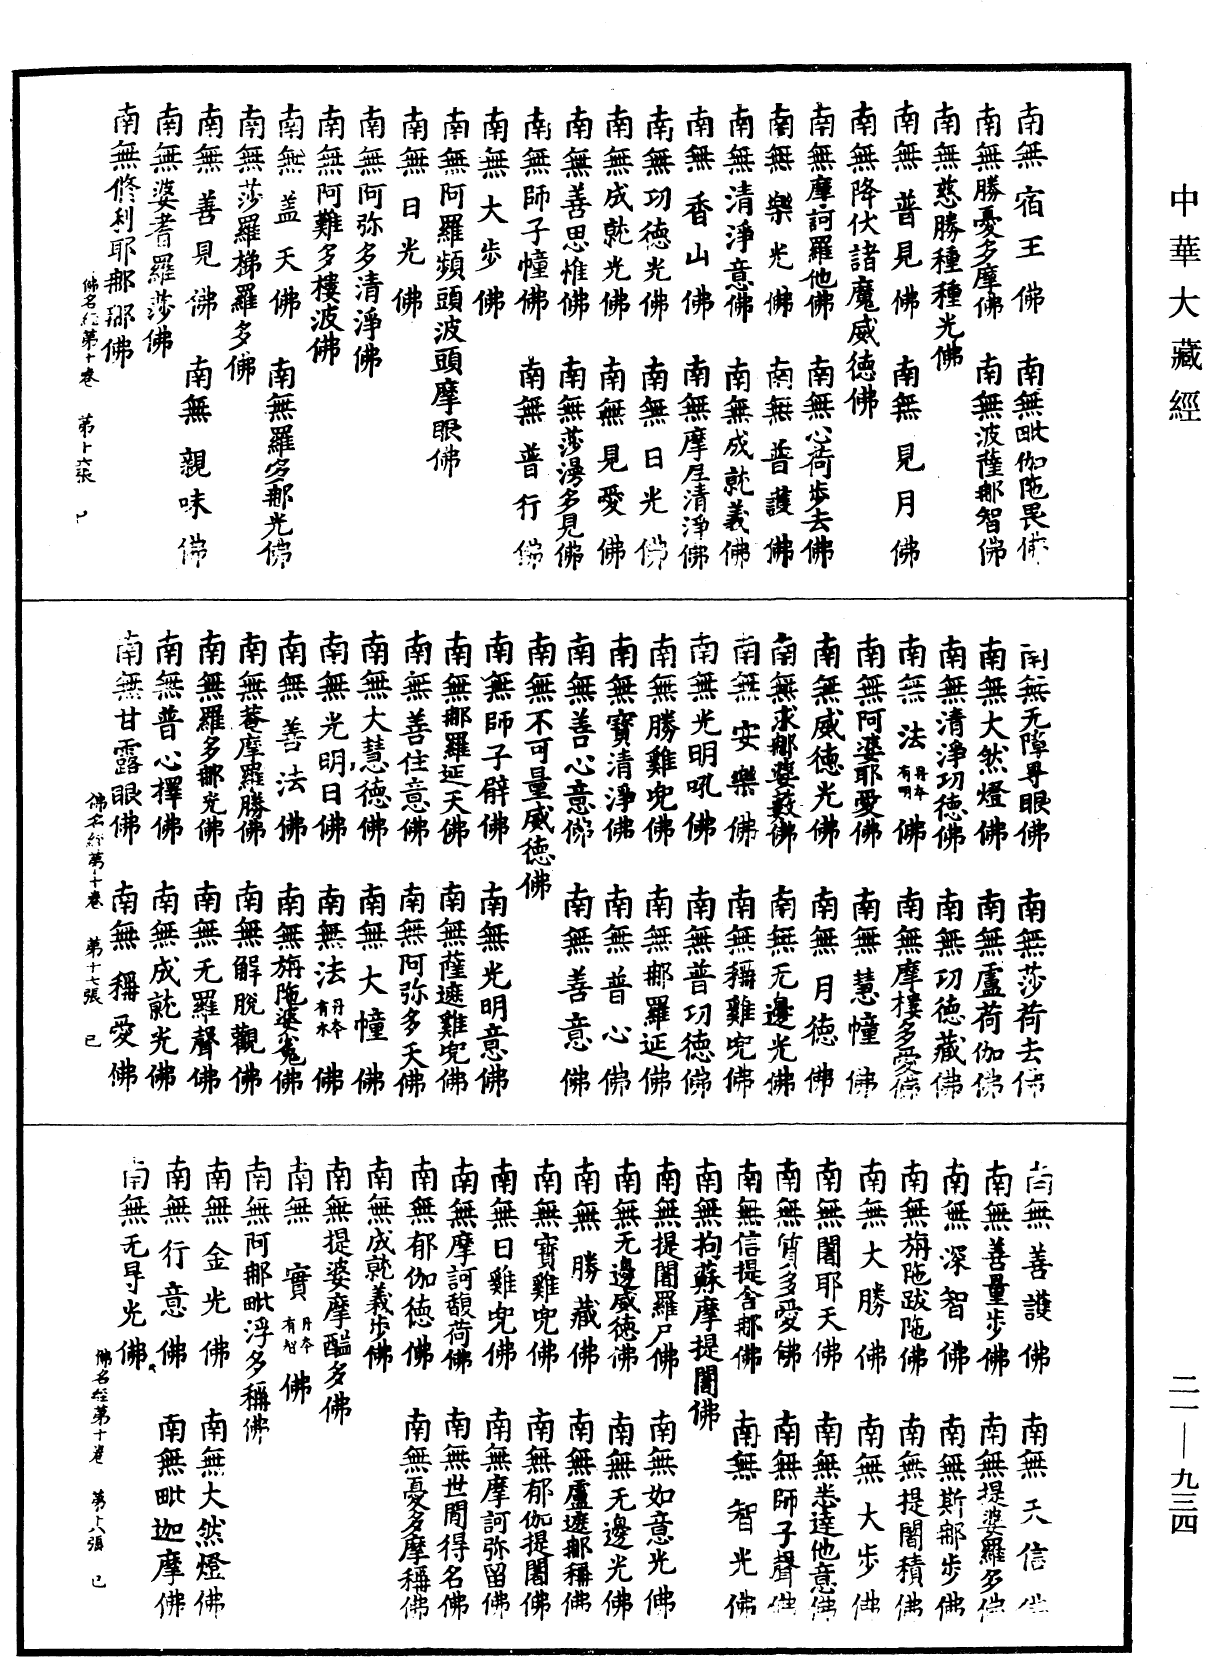 中華大藏經
南無宿王佛 南無毗伽陁畏佛
南無勝憂多摩佛 南無波薩那智佛
南無慈勝種種光佛
南無普見佛 南無見月佛
南無降伏諸魔威德佛
南無摩訶羅他佛 南無心荷步去佛
南無樂光佛 南無普護佛
南無清淨意佛 南無成就義佛
南無香山佛 南無摩尼清淨佛
南無功德光佛 南無日光佛
南無成就光佛 南無見愛佛
南無善思惟佛 南無莎漫多見佛
南無師子幢佛 南無普行佛
南無大步佛
南無阿羅頻頭波頭摩眼佛
南無日光佛
南無阿弥多清淨佛
南無阿難多樓波佛
南無盖天佛 南無羅多那光佛
南無莎羅梯羅多佛
南無善見佛 南無親味佛
南無婆耆羅莎佛
南無修利耶那那佛
佛名經第十卷 第十六張
南無无障㝵眼佛 南無莎荷去佛
南無大然燈佛 南無盧荷伽佛
南無清淨功德佛 南無功德藏佛
南無法丹本有明佛 南無摩樓多愛佛
南無阿婆耶愛佛 南無慧幢佛
南無威德光佛 南無月德佛
南無求那婆藪佛 南無无邊光佛
南無安樂佛 南無稱雞兜佛
南無光明吼佛 南無普功德佛
南無勝雞兜佛 南無那羅延佛
南無寶清淨佛 南無普心佛
南無善心意佛 南無善意佛
南無不可量威德佛
南無師子臂佛 南無光明意佛
南無那羅延天佛 南無薩遮雞兜佛
南無善住意佛 南無阿弥多天佛
南無大慧德佛 南無大幢佛
南無光明日佛 南無法丹本有水佛
南無善法佛 南無旃陁婆㝹佛
南無菴摩羅勝佛 南無解脫觀佛
南無羅多那光佛 南無无羅聲佛
南無普心擇佛 南無成就光佛
南無甘露眼佛 南無稱愛佛
佛名經第十卷 第十七張 已
南無善護佛 南無天信佛
南無善量步佛 南無提婆羅多佛
南無深智佛 南無斯那步佛
南無旃陁跋陁佛 南無提闍積佛
南無大勝佛 南無大步佛
南無闍耶天佛 南無悉達他意佛
南無質多愛佛 南無師子聲佛
南無信提舍那佛 南無智光佛
南無拘蘇摩提闍佛
南無提闍羅尸佛 南無如意光佛
南無无邊威德佛 南無无邊光佛
南無勝藏佛 南無盧遮那稱佛
南無寶雞兜佛 南無郁伽提闍佛
南無日雞兜佛 南無摩訶弥留佛
南無摩訶馥荷佛 南無世間得名佛
南無郁伽德佛 南無憂多摩稱佛
南無成就義步佛
南無提婆摩醯多佛
南無實丹本有智佛
南無阿那毗浮多稱佛
南無金光佛 南無大然燈佛
南無行意佛 南無毗迦摩佛
南無无㝵光佛
佛名經第十卷 第十八張 已
二一—九三四